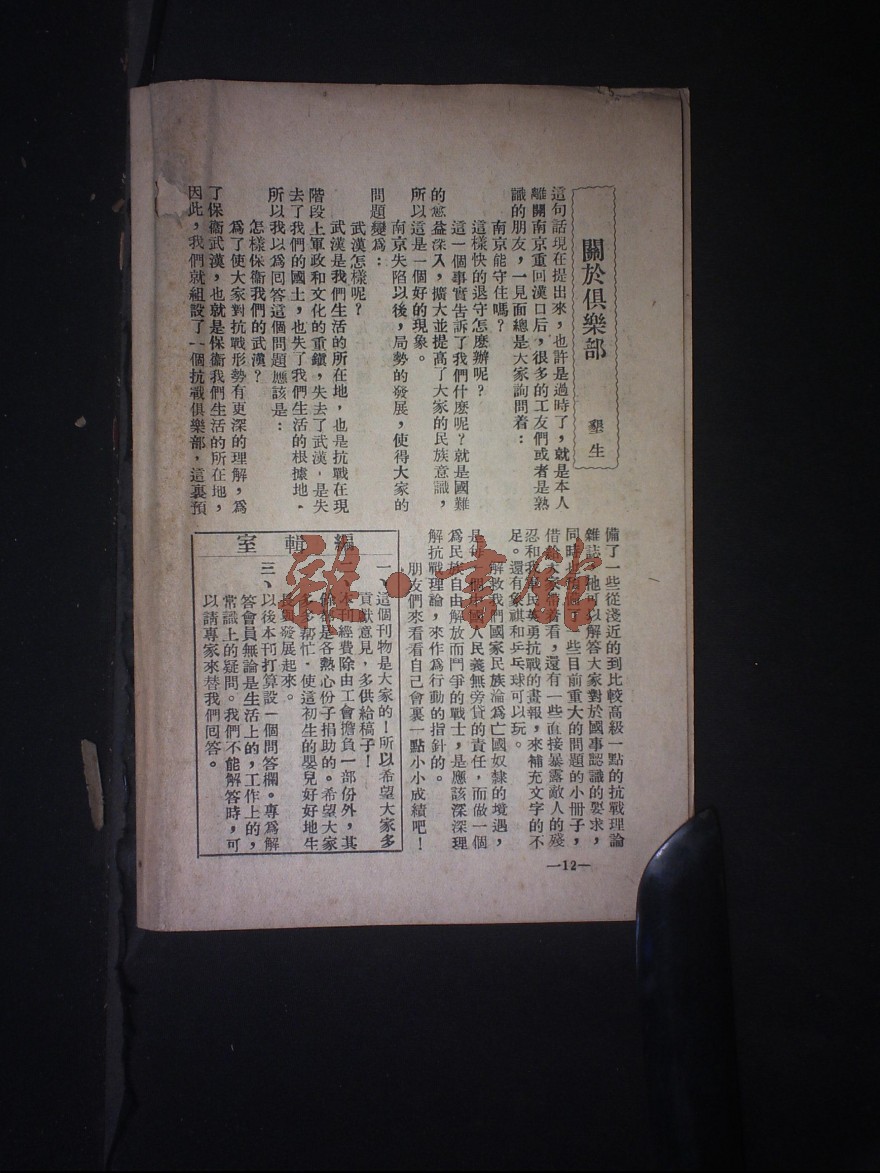 關於俱樂部
墾生
這句話現在提出來，也許是過時了，就是本人
離開南京重回漢口后，很多的工友們或者是熟
識的朋友，一見面總是大家詢問着：
南京能守住嗎？
這樣快的退守怎麼辦呢？
這一個事實告訴了我們什麼呢？就是國難
的愈益深入，擴大並提高了大家的民族意識，
所以這是一個好的現象。
南京失陷以後，局勢的發展，使得大家的
問題變爲：
武漢怎樣呢？
武漢是我們生活的所在地，也是抗戰在現
階段上軍政和文化的重鎭，失去了武漢，是失
去了我們的國土，也失了我們生活的根據地。
所以我以爲回答這個問題應該是：
怎樣保衞我們的武漢？
爲了使大家對抗戰形勢有更深的理解，爲
了保衞武漢，也就是保衞我們生活的所在地，
因此，我們就組設了一個抗戰俱樂部，這裏預
備了一些從淺近的到比較高級一點的抗戰理論
雜誌，他可以解答大家對於國事認識的要求，
同時也預備了一些目前重大的問題的小冊子，
借給大家帶着看，還有一些直接暴露敵人的殘
忍和我軍民英勇抗戰的畫報，來補充文字的不
足。還有象祺和乒乓球可以玩。
解救我們國家民族淪爲亡國奴隸的境遇，
是每一個中國人民義無旁貸的責任，而做一個
爲民族自由解放而鬥爭的戰士，是應該深深理
解抗戰理論，來作爲行動的指針的。
朋友們來看看自己會裏一點小小成績吧！
編輯室
一、這個刊物是大家的！所以希望大家多
貢獻意見，多供給稿子！
二、本刊經費除由工會擔負一部份外，其
餘都是各熱心份子捐助的。希望大家
多多幫忙，使這初生的嬰兒好好地生
長與發展起來。
三、以後本刊打算設一個問答欄。專爲解
答會員無論是生活上的，工作上的，
常識上的疑問。我們不能解答時，可
以請專家來替我們回答。
—12—
雜·書館